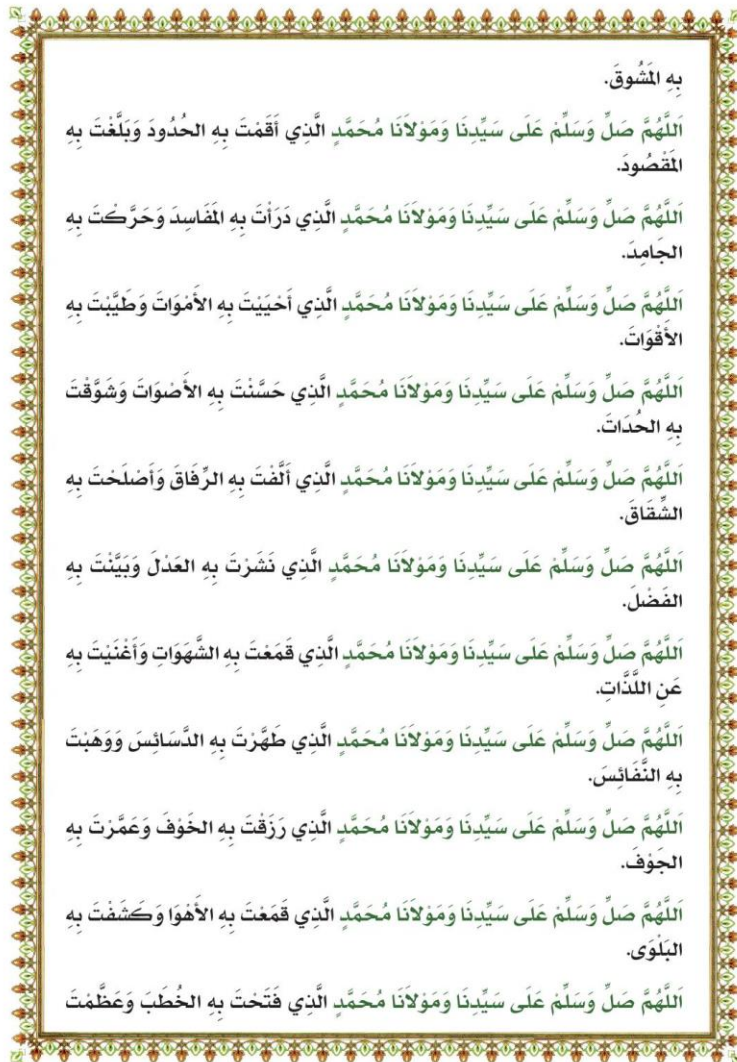 بِهِ المَشُوقَ.
اَللَّهُمَّ صَلِّ وَسَلِّمْ عَلَى سَيِّدِنَا وَمَوْلاَنَا مُحَمَّدٍ الَّذِي أَقَمْتَ بِهِ الحُدُودَ وَبَلَّغْتَ بِهِ
المَقْصُودَ.
اَللَّهُمَّ صَلِّ وَسَلِّمْ عَلَى سَيِّدِنَا وَمَوْلاَنَا مُحَمَّدٍ الَّذِي دَرَأْتَ بِهِ المَفَاسِدَ وَحَرَّكْتَ بِهِ
الجَامِدَ.
اَللَّهُمَّ صَلِّ وَسَلِّمْ عَلَى سَيِّدِنَا وَمَوْلاَنَا مُحَمَّدٍ الَّذِي أَحْيَيْتَ بِهِ الأَمْوَاتَ وَطَيَّبْتَ بِهِ
الأَقْوَاتَ.
اَللَّهُمَّ صَلِّ وَسَلِّمْ عَلَى سَيِّدِنَا وَمَوْلاَنَا مُحَمَّدٍ الَّذِي حَسَّنْتَ بِهِ الأَصْوَاتَ وَشَوَّقْتَ
بِهِ الحُدَاتَ.
اَللَّهُمَّ صَلِّ وَسَلِّمْ عَلَى سَيِّدِنَا وَمَوْلاَنَا مُحَمَّدٍ الَّذِي أَلَّفْتَ بِهِ الرِّفَاقَ وَأَصْلَحْتَ بِهِ
الشِّقَاقَ.
اَللَّهُمَّ صَلِّ وَسَلِّمْ عَلَى سَيِّدِنَا وَمَوْلاَنَا مُحَمَّدٍ الَّذِي نَشَرْتَ بِهِ العَدْلَ وَبَيَّنْتَ بِهِ
الفَضْلَ.
اَللَّهُمَّ صَلِّ وَسَلِّمْ عَلَى سَيِّدِنَا وَمَوْلاَنَا مُحَمَّدٍ الَّذِي قَمَعْتَ بِهِ الشَّهَوَاتِ وَأَغْنَيْتَ بِهِ
عَنِ اللَّذَّاتِ.
اَللَّهُمَّ صَلِّ وَسَلِّمْ عَلَى سَيِّدِنَا وَمَوْلاَنَا مُحَمَّدٍ الَّذِي طَهَّرْتَ بِهِ الدَّسَائِسَ وَوَهَبْتَ
بِهِ النَّفَائِسَ.
اَللَّهُمَّ صَلِّ وَسَلِّمْ عَلَى سَيِّدِنَا وَمَوْلاَنَا مُحَمَّدٍ الَّذِي رَزَقْتَ بِهِ الخَوْفَ وَعَمَّرْتَ بِهِ
الجَوْفَ.
اَللَّهُمَّ صَلِّ وَسَلِّمْ عَلَى سَيِّدِنَا وَمَوْلاَنَا مُحَمَّدٍ الَّذِي قَمَعْتَ بِهِ الأَهْوَا وَكَشَفْتَ بِهِ
البَلْوَى.
اَللَّهُمَّ صَلِّ وَسَلِّمْ عَلَى سَيِّدِنَا وَمَوْلاَنَا مُحَمَّدٍ الَّذِي فَتَحْتَ بِهِ الخُطَبَ وَعَظَّمْتَ